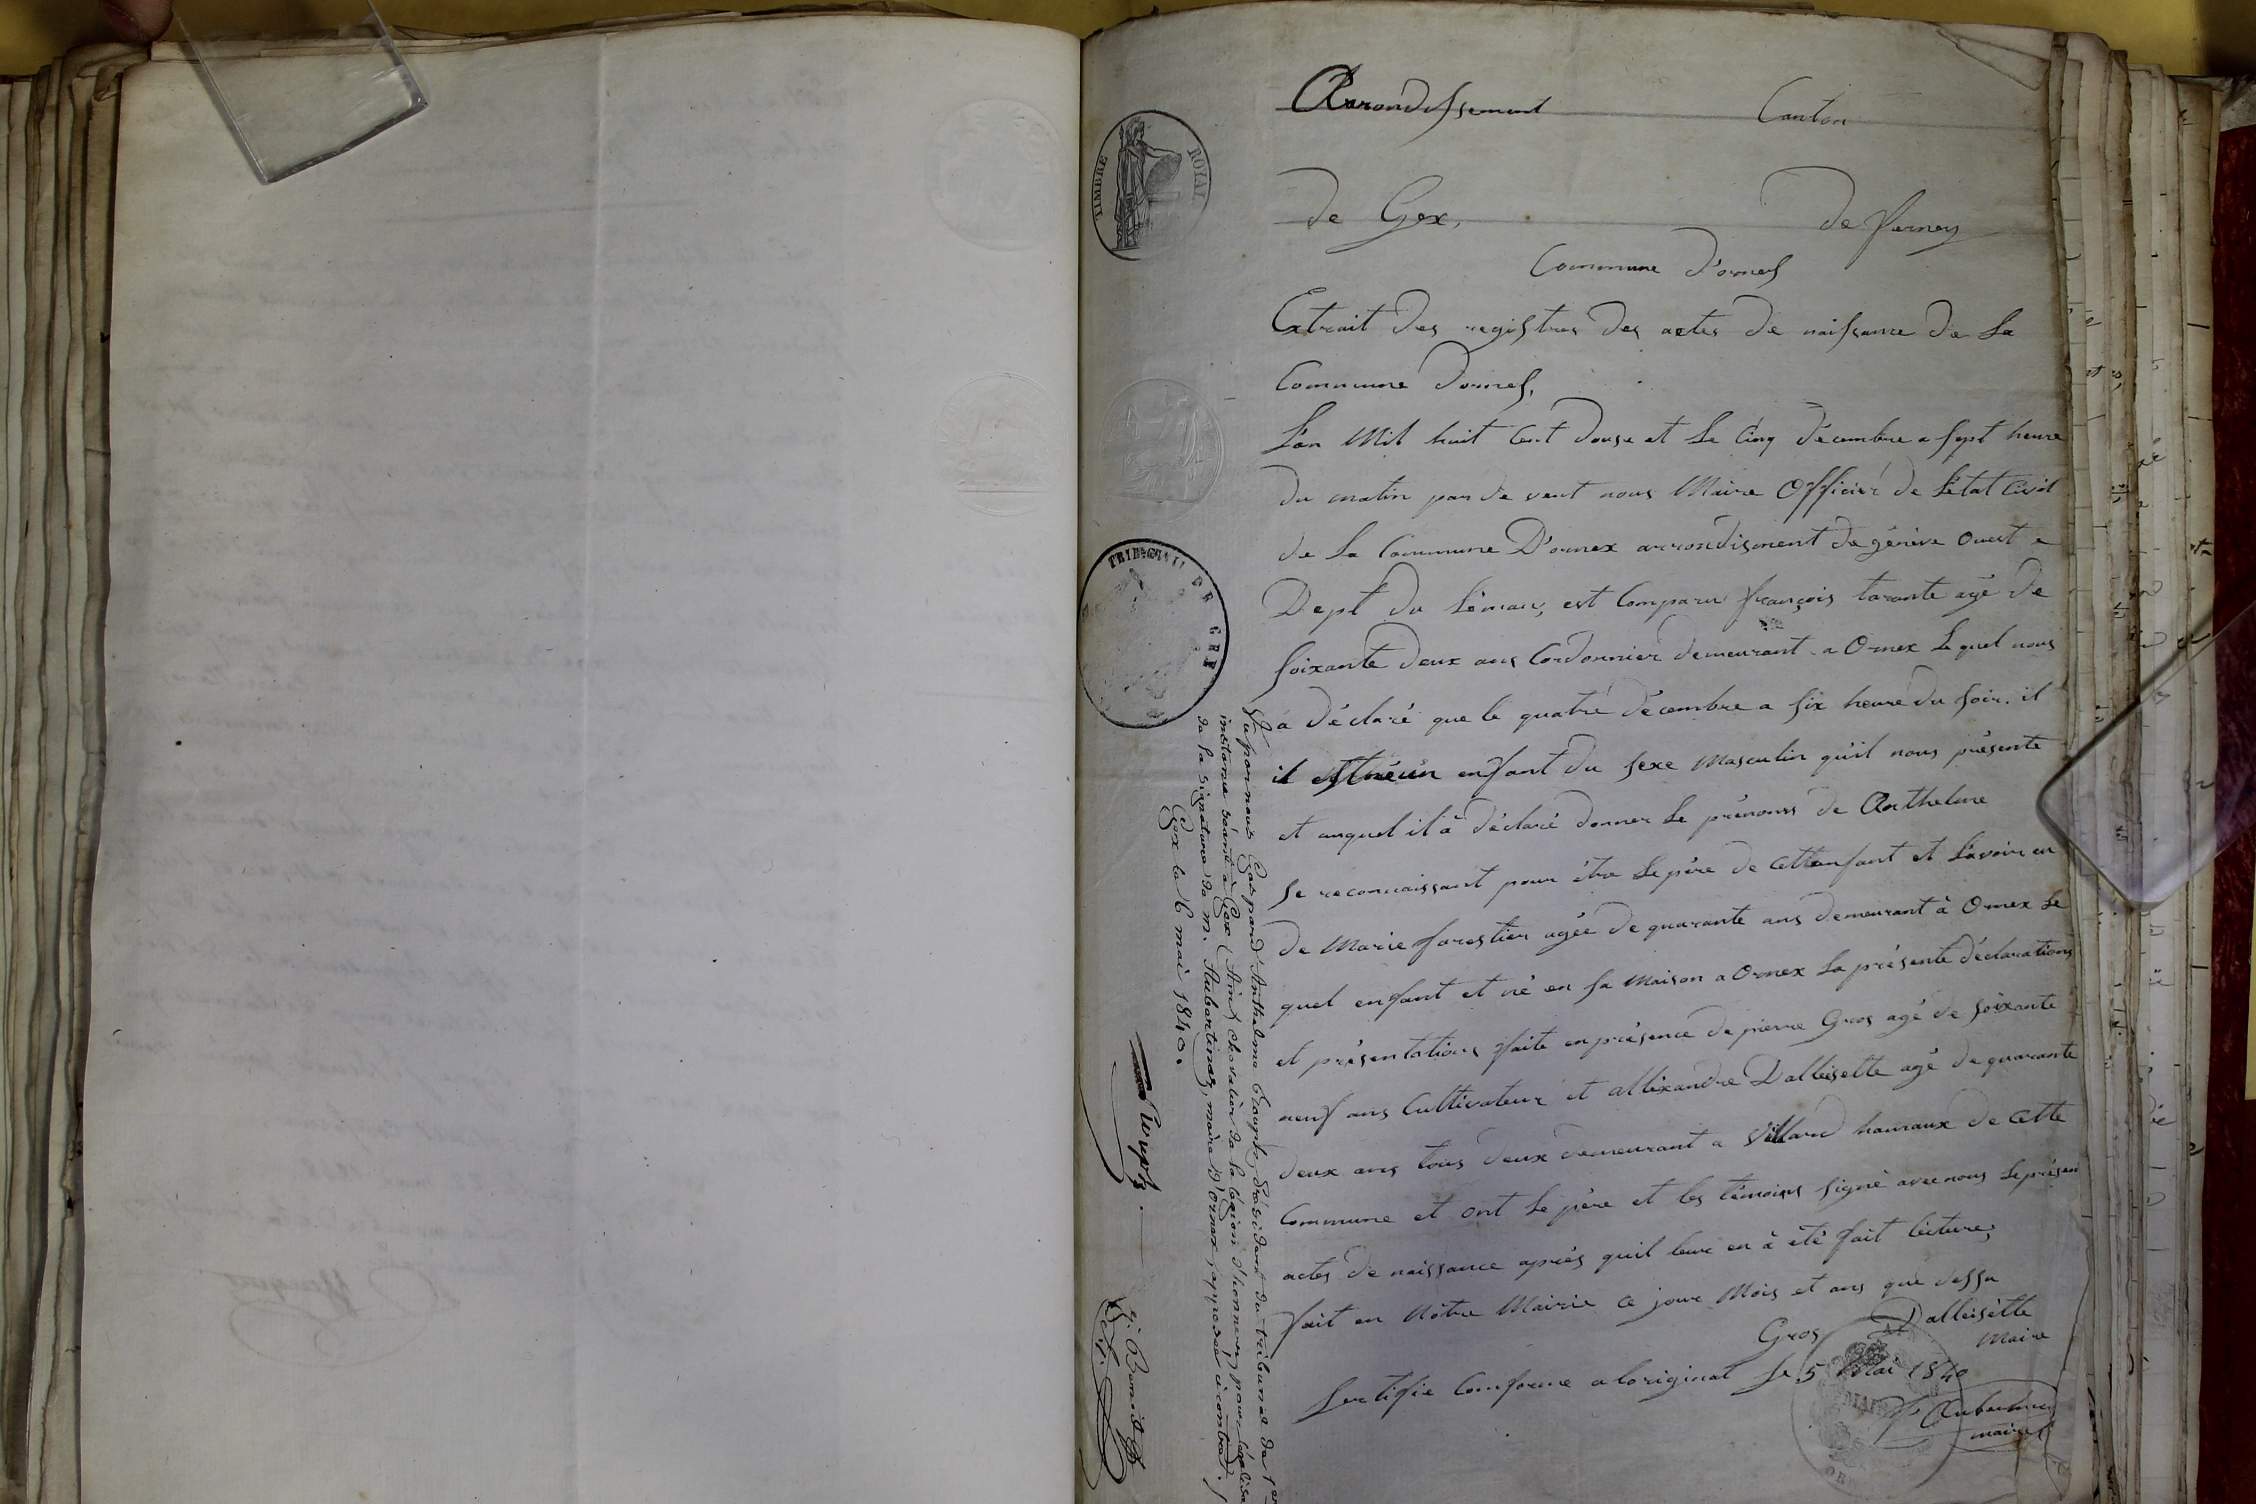 Arrondissement Canton
de Gex, de Ferney
Commune d'ornex
Extrait des registres des actes de naissance de la
Commune dornex,
L'an Mil huit Cent douze et le cinq décembre a sept heure
du matin par de vent nous Maire Officier de L'état Civil
de La Commune D'ornex arrondisment de géneve ouest
Dept du Léman, est Comparu françois tarante agé de
soixante deux ans Cordonnier demeurant a Ornex Le quel nous
a déclaré que le quatre décembre a six heure du soir. il
il est né un enfant du sexe Masculin qu'il nous présente
et auquel il à déclaré donner Le prénoms de Anthelme
se reconnaissant pour être Le père de cett enfant et L'avoir eu
de Marie forestier agée de quarante ans demeurant à Ornex Le
quel enfant et né en sa Maison a Ornex La présente déclarations
et présentations faite en présence de pierre Gros agé de soixante
neuf ans Cultivateur et allixandre Dalleisette agé de quarante
deux ans tous deux demeurant a Villard hamaux de Cette
Commune et ont Le père et les témoins signé avec nous Le présen
actes de naissance après quil leur en à été fait lécture,
fait en Nôtre Mairie ce jour Mois et ans que dessu
Gros Dalleisette
Maire
Sertifie Comforme a loriginal Le 5 Mai 1840
maire
TIMBRE ROYAL
TRIBUNAL DE GEX
Vu par nous Gaspard Anthelme Président du tribunal de 1er
instance séant à Gex (Ain) chevalier de la légion d'honneur, pour légalisa
de la signature de m. Aubertinaz, maire d'Ornex, apposée ci contre.
Gex le 6 mai 1840.
MAIRIE